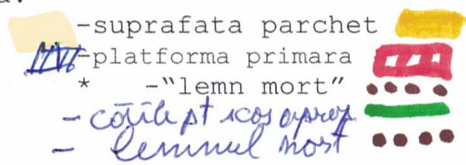 -suprafata parchet
-platforma primara
* -"lemn mort"
- căile pt scos
- lemnul mort